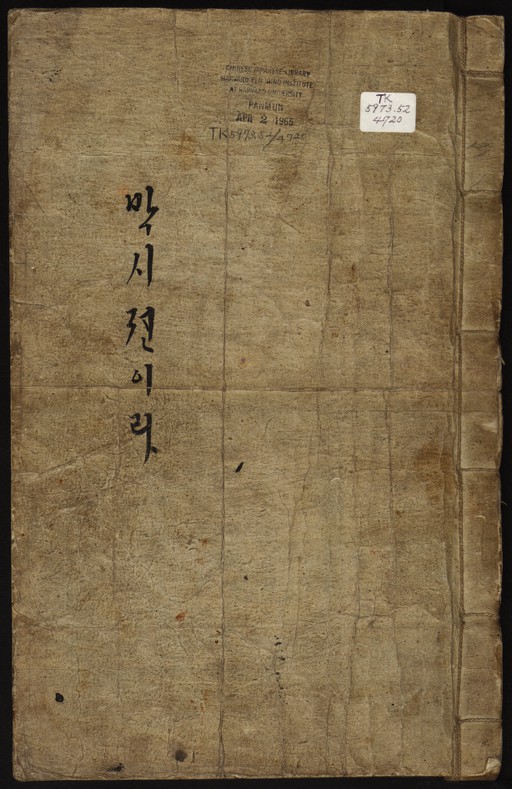 CHINESE-JAPANESE LIBRARY
HARVARD-YENCHING INSTITUTE
AT HARVARD UNIVERSITY
PANMUN
APR 2 1965
TK 5973.52/4720
TK
5973.52
4720
박시젼이라